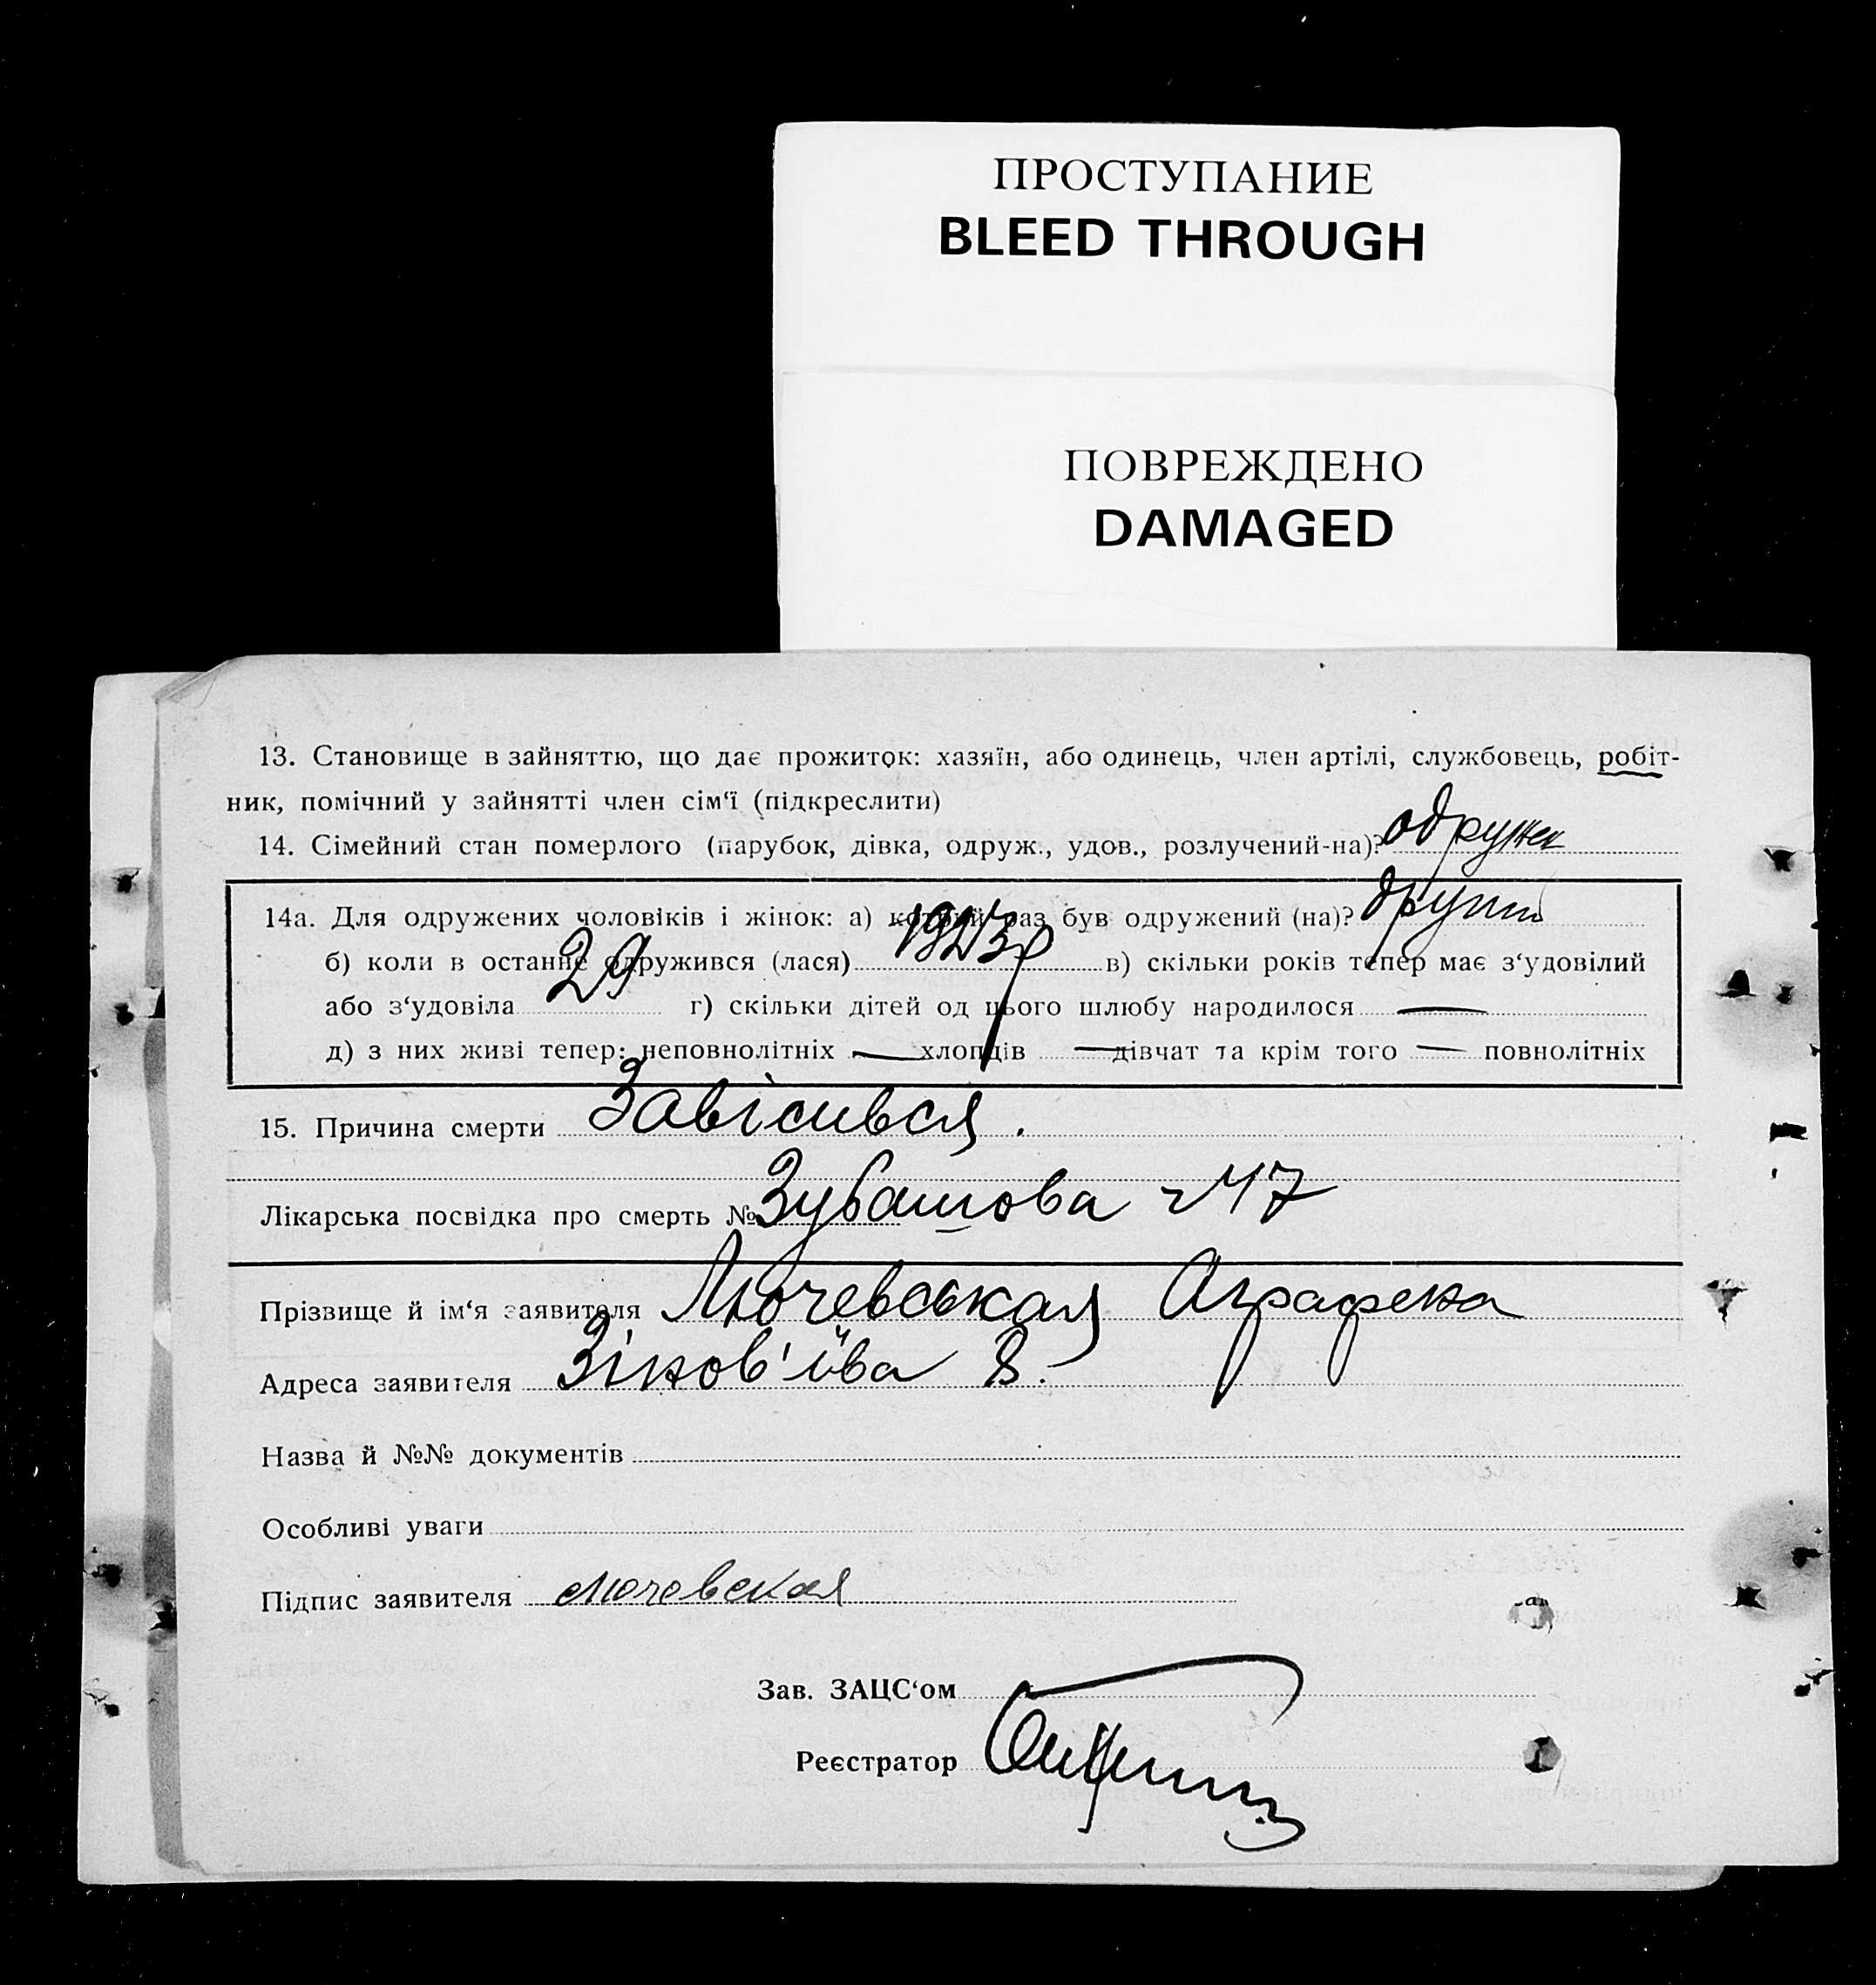 ПРОСТУПАНИЕ
BLEED THROUGH
ПОВРЕЖДЕНО
DAMAGED
13. Становище в зайняттю, що дає прожиток: хазяїн, або одинець, член артілі, службовець, робіт-
ник, помічний у зайнятті член сім‘ї (підкреслити)
14. Сімейний стан померлого (парубок, дівка, одруж., удов., розлучений-на)? одружен
14а. Для одружених чоловіків і жінок: а) котрий раз був одружений (на)?
б) коли в останнє одружився (лася) 1923р в) скільки років тепер має з‘удовілий
або з‘удовіла 29 г) скільки дітей од цього шлюбу народилося —
д) з них живі тепер: неповнолітніх — хлопців — дівчат та крім того — повнолітніх
15. Причина смерти Завісився.
Лікарська посвідка про смерть № Зубашова
Прізвище й ім‘я заявителя Лючевськая Аграфена
Адреса заявителя Зінов'їва 8.
Назва й №№ документів
Особливі уваги
Підпис заявителя Лючевская
Зав. ЗАЦС‘ом
Реєстратор